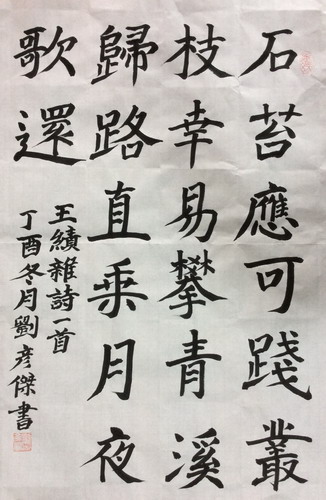 石苔應可踐叢
枝幸易攀青溪
歸路直乘月夜
歌還
王績雜詩一首
丁酉冬月劉彦傑書